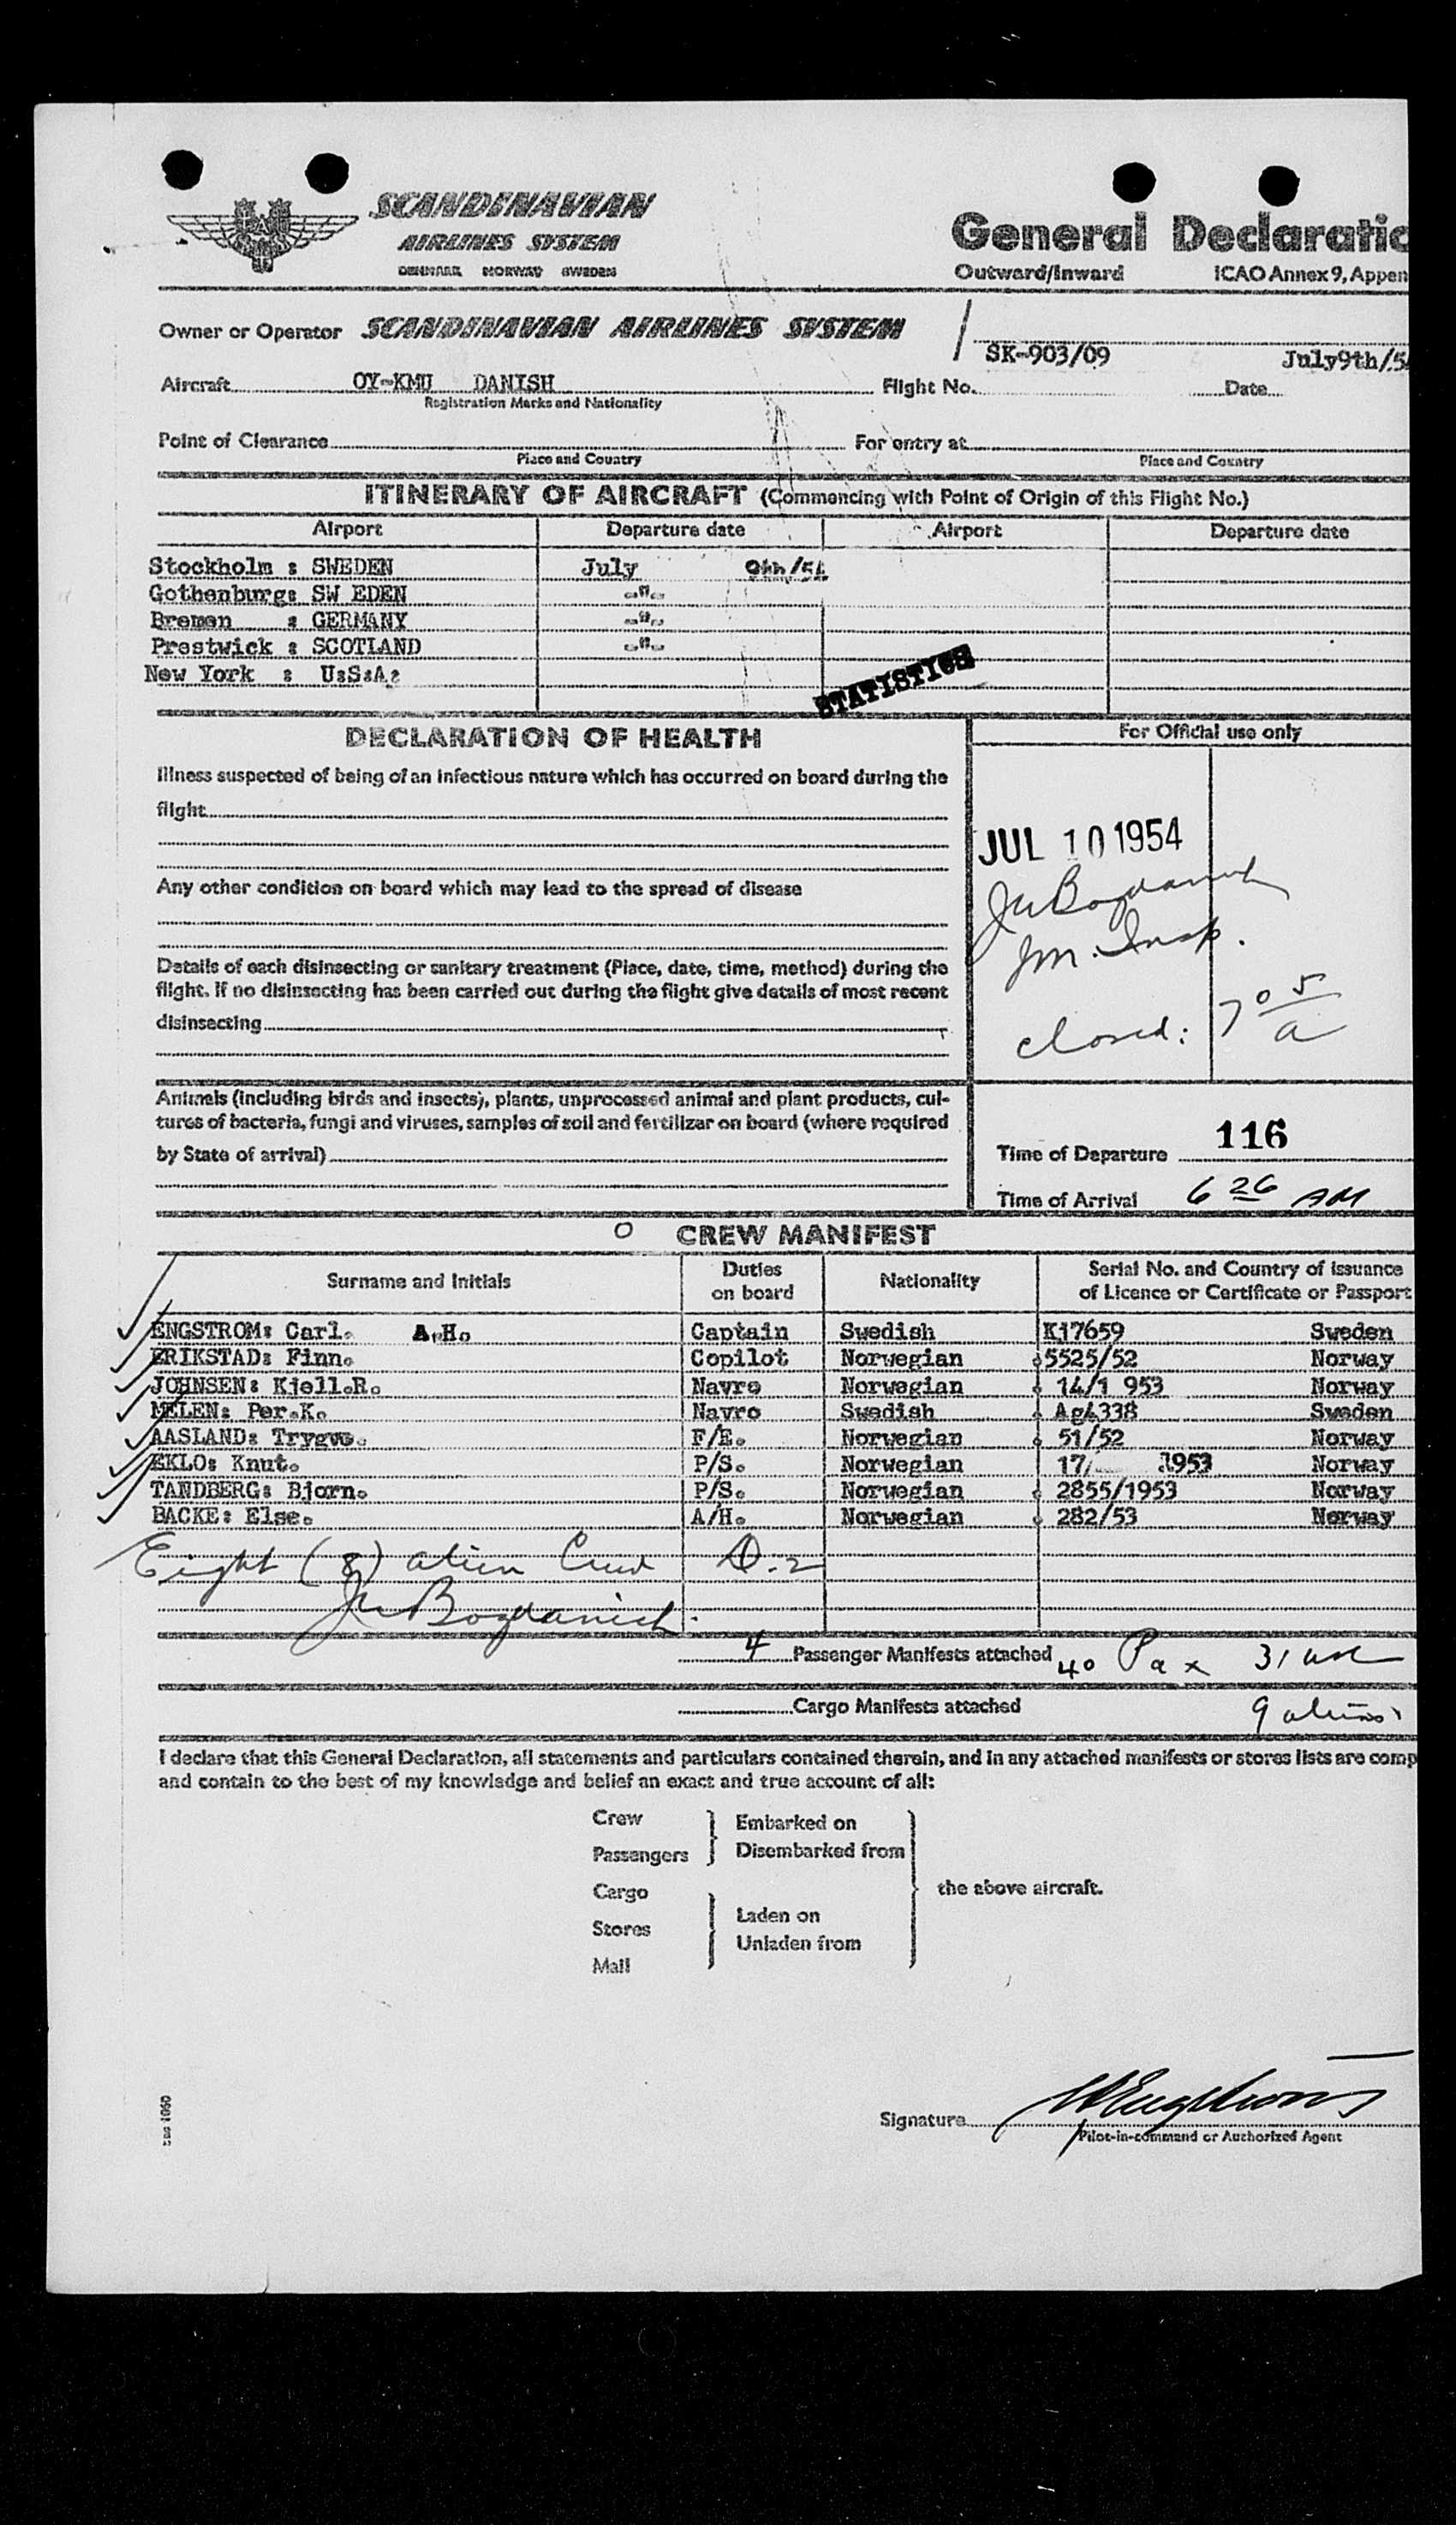 SCANDINAVIAN
AIRLINES SYSTEM
DENMARK NORWAY SWEDEN
General Declaratio
Outward/Inward ICAO Annex 9, Appen
Owner or Operator SCANDINAVIAN AIRLINES SYSTEM
SK-903/09 July9th/5
Aircraft OY-KMU DANISH Flight No. Date
Registration Marks and Nationality
Point of Clearance For entry at
Place and Country Place and Country
ITINERARY OF AIRCRAFT (Commencing with Point of Origin of this Flight No.)
Airport Departure date Airport Departure date
Stockholm : SWEDEN July 9th/54
Gothenburg: SW EDEN -"-
Bremen : GERMANY -"-
Prestwick : SCOTLAND -"-
New York : U:S:A:
STATISTICS
DECLARATION OF HEALTH
For Official use only
Illness suspected of being of an infectious nature which has occurred on board during the
flight
JUL 10 1954
Any other condition on board which may lead to the spread of disease
Bogdanich
Im. Insp.
Details of each disinsecting or sanitary treatment (Place, date, time, method) during the
flight. If no disinsecting has been carried out during the flight give details of most recent
disinsecting
closed: 7 05/a
Animals (including birds and insects), plants, unprocessed animal and plant products, cul-
tures of bacteria, fungi and viruses, samples of soil and fertilizer on board (where required
by State of arrival)
116
Time of Departure
Time of Arrival 6 26 AM
O CREW MANIFEST
Surname and Initials Duties on board Nationality Serial No. and Country of issuance of Licence or Certificate or Passport
ENGSTROM: Carl. A.H. Captain Swedish K17659 Sweden
ERIKSTAD: Finn. Copilot Norwegian 5525/52 Norway
JOHNSEN: Kjell.R. Navro Norwegian 14/1 953 Norway
MELEN: Per.K. Navro Swedish Ag4338 Sweden
AASLAND: Trygve. F/E. Norwegian 51/52 Norway
EKLO: Knut. P/S. Norwegian 17/ 1953 Norway
TANDBERG: Bjorn. P/S. Norwegian 2855/1953 Norway
BACKE: Else. A/H. Norwegian 282/53 Norway
Eight (8) alien Crew D-2
Bogdanich
4 Passenger Manifests attached 40 Pax 31 usc
Cargo Manifests attached 9 aliens
I declare that this General Declaration, all statements and particulars contained therein, and in any attached manifests or stores lists are comp
and contain to the best of my knowledge and belief an exact and true account of all:
Crew Embarked on
Passengers Disembarked from
Cargo the above aircraft.
Stores Laden on
Mail Unladen from
Signature
Pilot-in-command or Authorized Agent